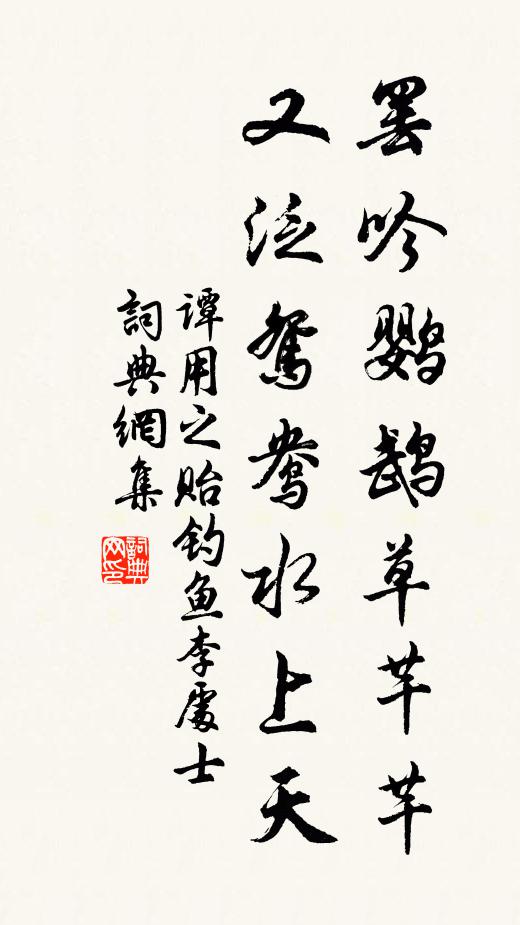 罢吟鹦鹉草芊芊
又泛鸳鸯水上天
谭用之贻钓鱼李處士
詞典網集
詞典网印